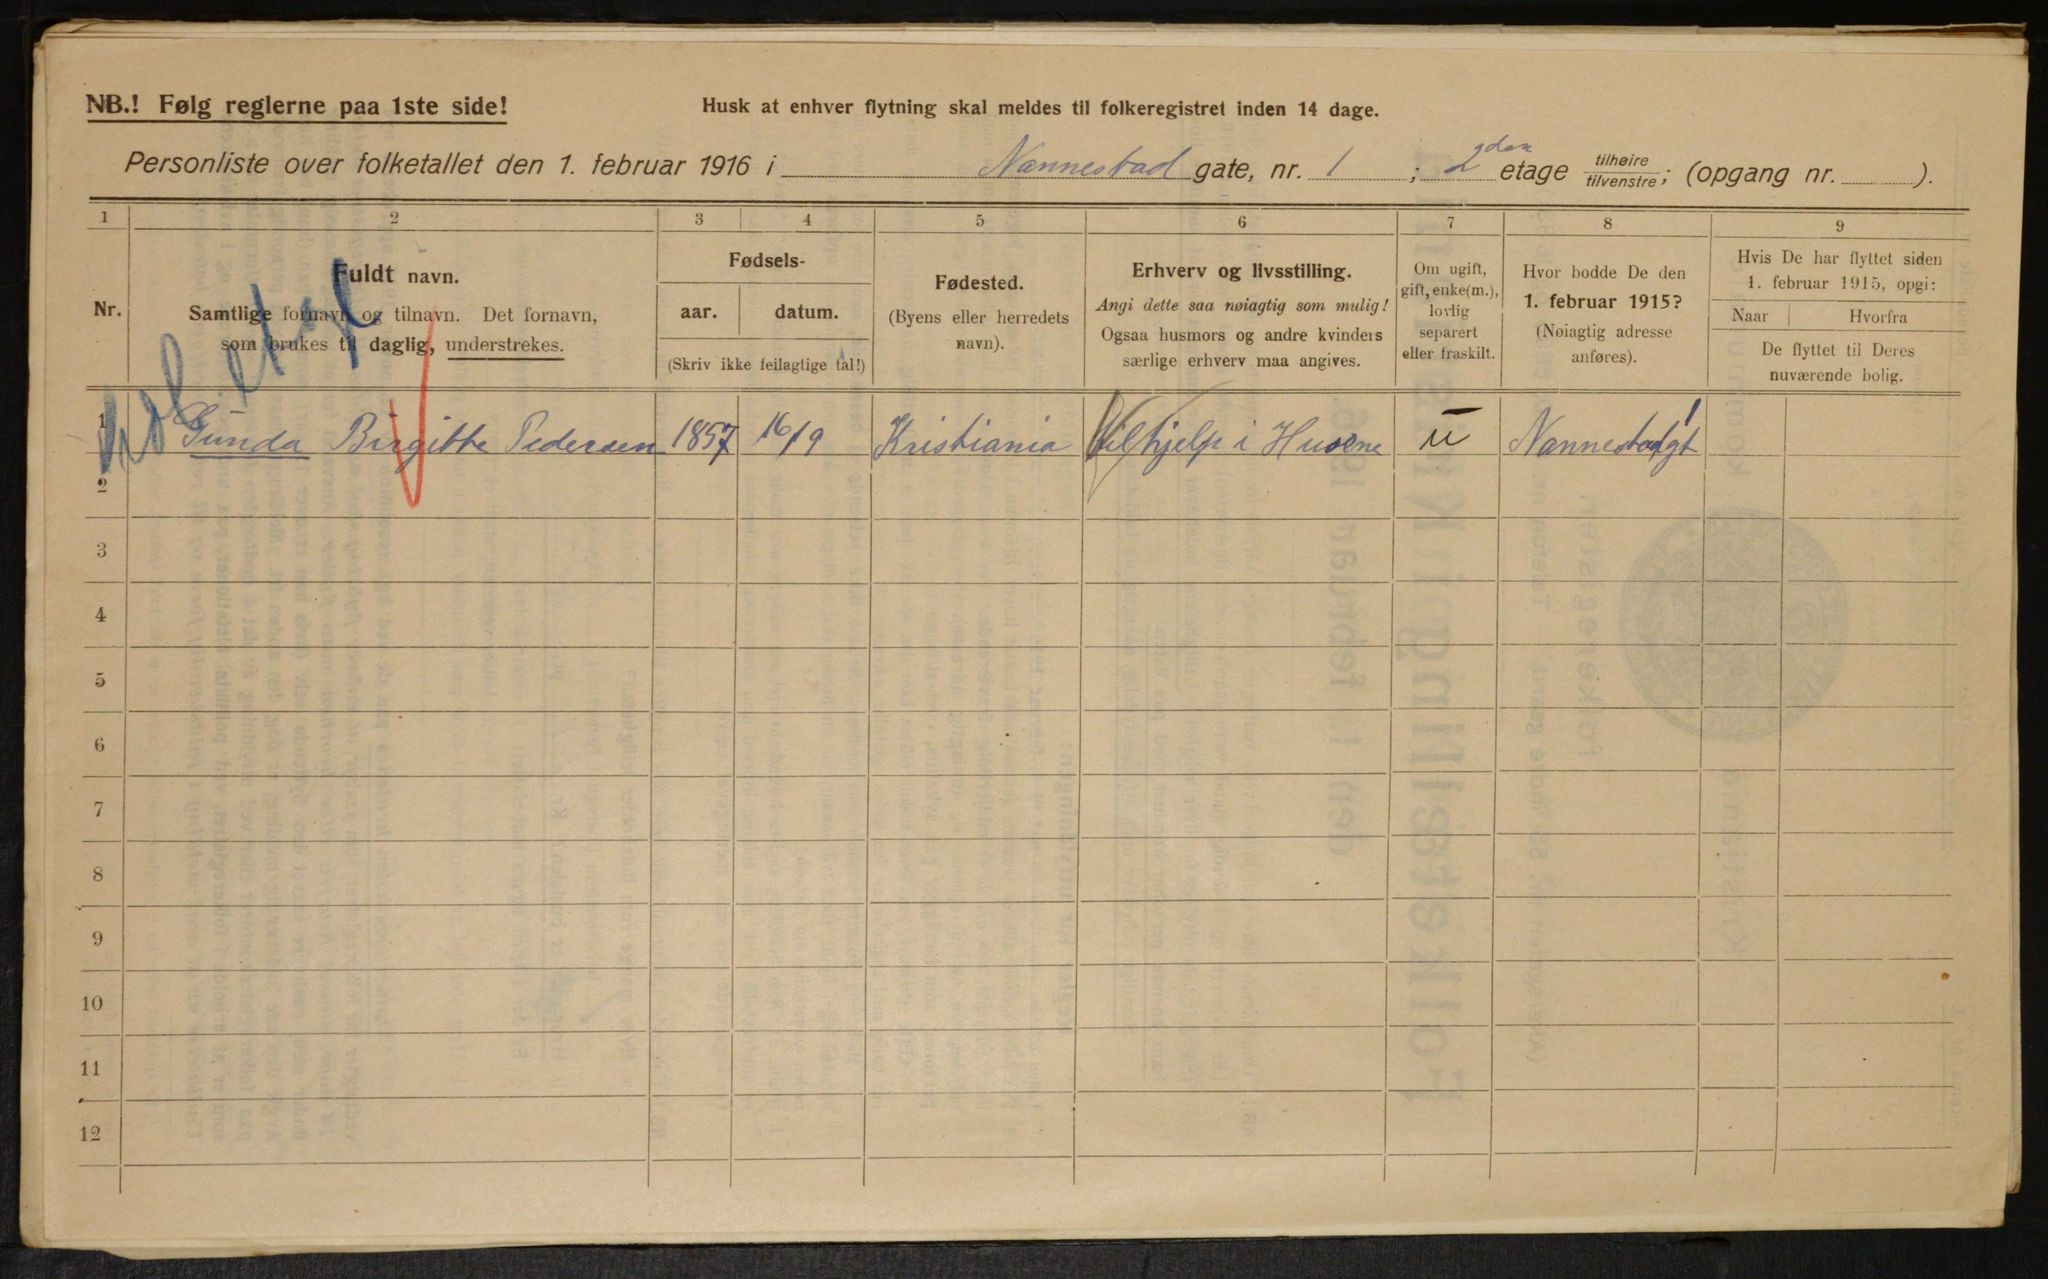 NB.! Følg reglerne paa 1ste side!
Husk at enhver flytning skal meldes til folkeregistret inden 14 dage.
Personliste over folketallet den 1. februar 1916 i Nannestad gate, nr. 1 ; 2den etage tilhøire/tilvenstre; (opgang nr. ).
1 2 3 4 5 6 7 8 9
Nr.
Fuldt navn.
Samtlige fornavn og tilnavn. Det fornavn,
som brukes til daglig, understrekes.
Fødsels-
aar. datum.
(Skriv ikke feilagtige tal!)
Fødested.
(Byens eller herredets
navn).
Erhverv og livsstilling.
Angi dette saa nøiagtig som mulig!
Ogsaa husmors og andre kvinders
særlige erhverv maa angives.
Om ugift,
gift, enke(m.),
lovlig
separert
eller fraskilt.
Hvor bodde De den
1. februar 1915?
(Nøiagtig adresse
anføres).
Hvis De har flyttet siden
1. februar 1915, opgi:
Naar Hvorfra
De flyttet til Deres
nuværende bolig.
1 Gunda Birgitte Pedersen 1857 16/9 Kristiania Tilhjelp i Husene u Nannestadgt 1
2
3
4
5
6
7
8
9
10
11
12